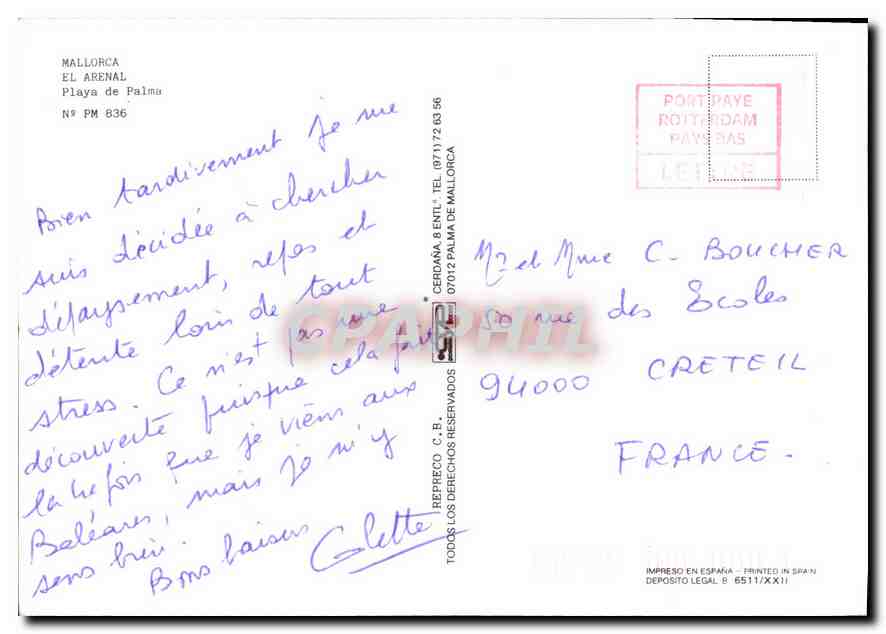 MALLORCA
EL ARENAL
Playa de Palma
Nº PM 836
Bien tardivement je me
suis décidée à chercher
dépaysement, repos et
détente loin de tout
stress. Ce n'est pas une
découverte puisque cela fait
la 4e fois que je viens aux
Baléares, mais je m'y
sens bien.
Bons baisers
Colette
REPRECO C.B.
TODOS LOS DERECHOS RESERVADOS
CERDAÑA, 8 ENTLº. TEL. (971) 72 63 56
07012 PALMA DE MALLORCA
PORT PAYE
ROTTERDAM
PAYS BAS
LETTRE
Mr et Mme C. BOUCHER
50 rue des Ecoles
94000 CRETEIL
FRANCE.
CPAPHIL
IMPRESO EN ESPAÑA - PRINTED IN SPAIN
DEPOSITO LEGAL B 6511/XXII